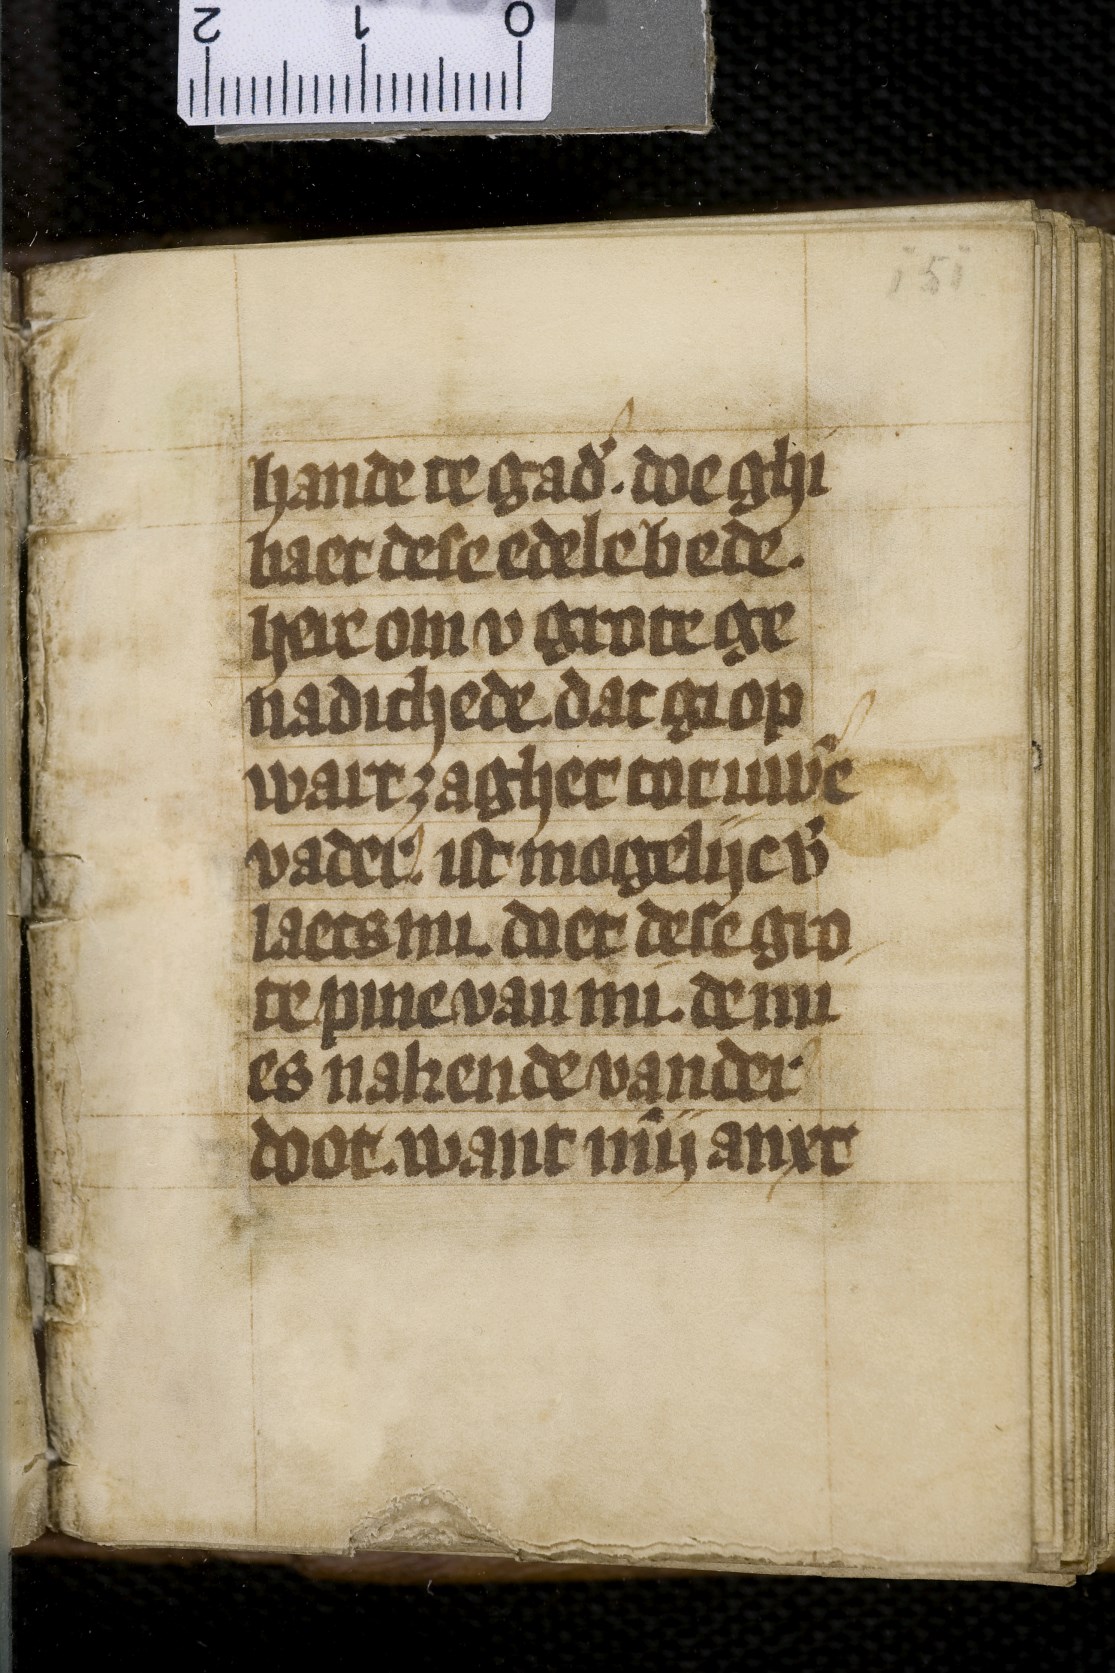 2 1 0
151
hande te gad᷑. doe ghi
baet dese edele bede.
here om v grote ge
nadichede. dat gi op
wart zaghet tot uwē
vader. ist mogelijc v᷑
laets mi. doet dese gro
te pine van mi. de nu
es nakende vander
doot. want mīij anxt